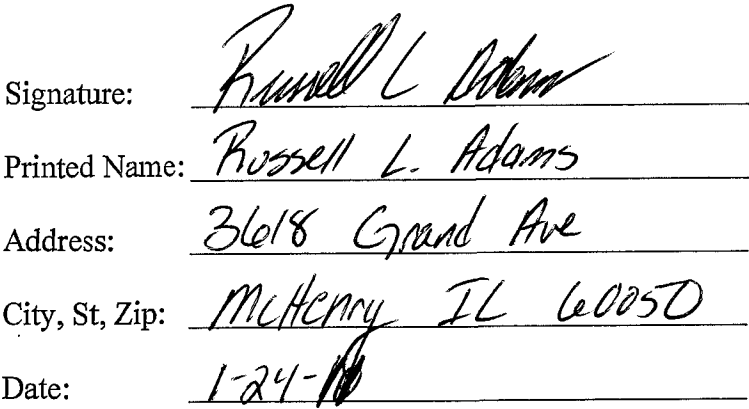 Signature: Russell L Adams
Printed Name: Russell L. Adams
Address: 3618 Grand Ave
City, St, Zip: McHenry IL 60050
Date: 1-24-